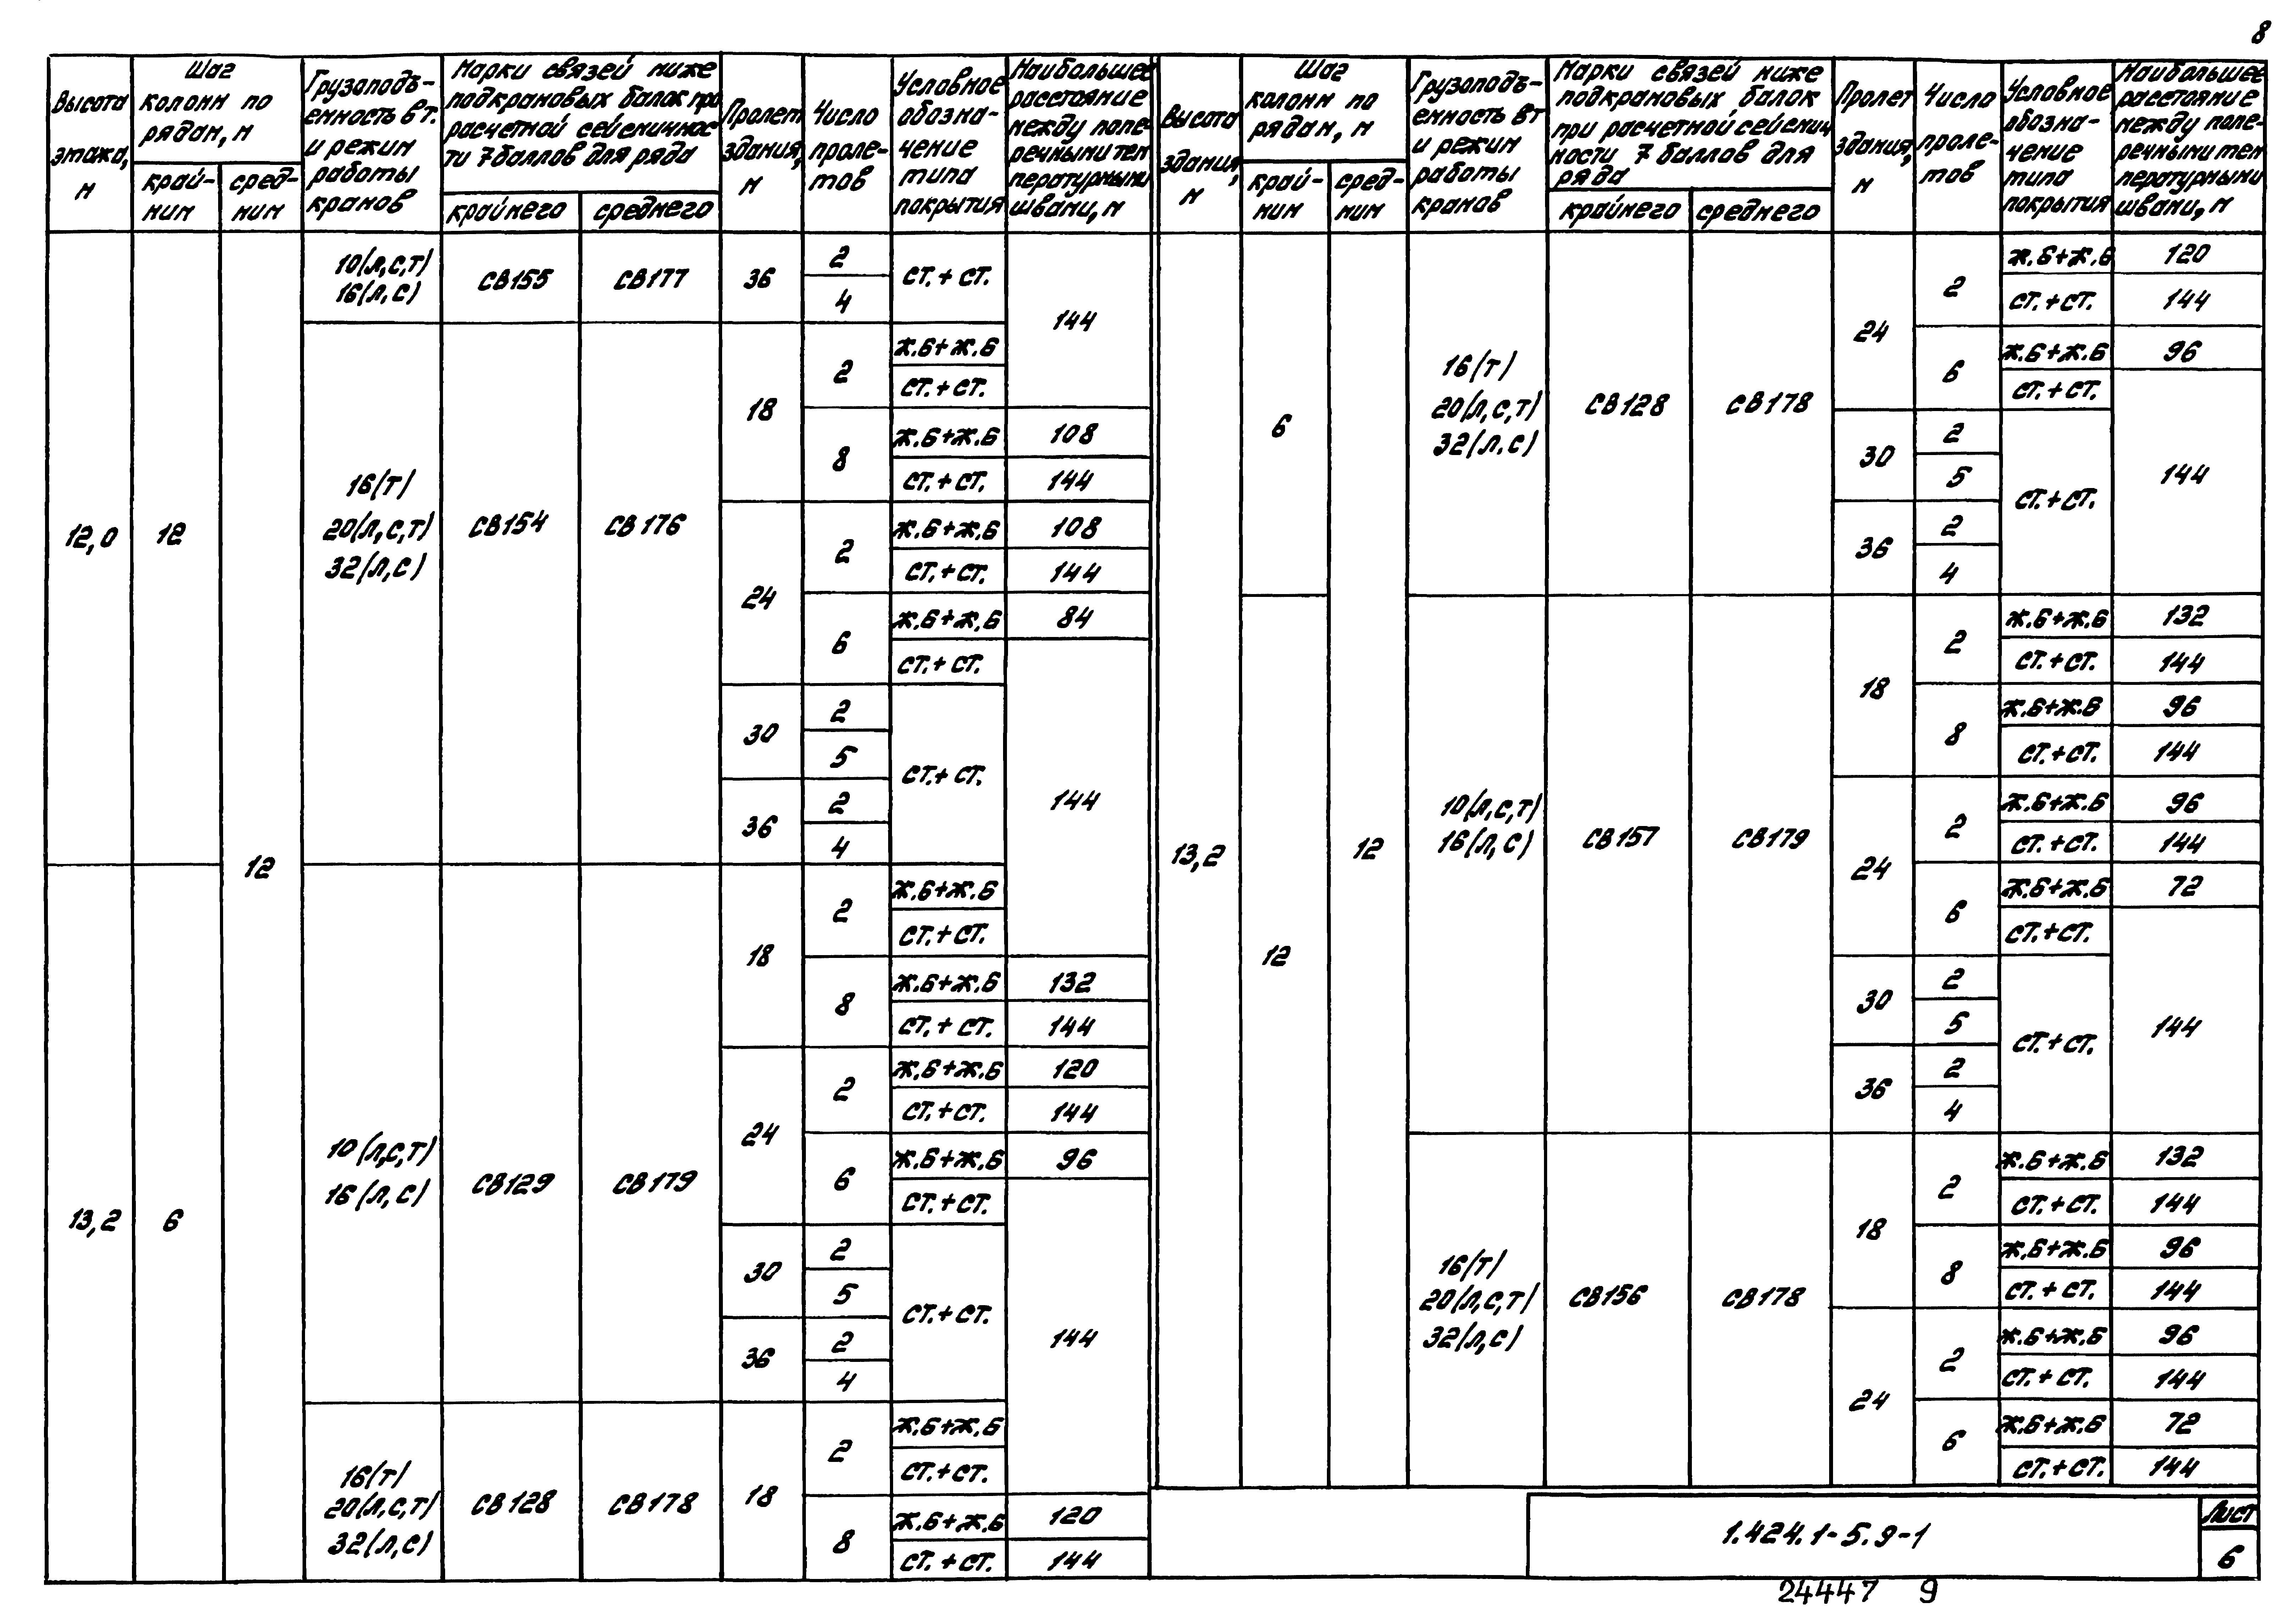 8
Высота
этажа,
м
Шаг
колонн по
рядам, м
край-
ним
сред-
ним
Грузоподъ-
емность в т.
и режим
работы
кранов
Марки связей ниже
подкрановых балок при
расчетной сейсмичнос
ти 7 баллов для ряда
крайнего
среднего
Пролет
здания,
м
Число
проле-
тов
Условное
обозна-
чение
типа
покрытия
Наибольшее
расстояние
между попе-
речными тем
пературными
швами, м
12,0
12
12
10(л,с,т)
16(л,с)
СВ155
СВ177
36
2
4
ст.+ст.
144
16(т)
20(л,с,т)
32(л,с)
СВ154
СВ176
18
2
ж.б+ж.б
ст.+ст.
8
ж.б+ж.б
108
ст.+ст.
144
24
2
ж.б+ж.б
108
ст.+ст.
144
6
ж.б+ж.б
84
ст.+ст.
144
30
2
5
ст.+ст.
36
2
4
13,2
6
10(л,с,т)
16(л,с)
СВ129
СВ179
18
2
ж.б+ж.б
ст.+ст.
8
ж.б+ж.б
132
ст.+ст.
144
24
2
ж.б+ж.б
120
ст.+ст.
144
6
ж.б+ж.б
96
ст.+ст.
144
30
2
5
ст.+ст.
36
2
4
16(т)
20(л,с,т)
32(л,с)
СВ128
СВ178
18
2
ж.б+ж.б
ст.+ст.
8
ж.б+ж.б
120
ст.+ст.
144
Высота
здания,
м
Шаг
колонн по
рядам, м
край-
ним
сред-
ним
Грузоподъ-
емность в т
и режим
работы
кранов
Марки связей ниже
подкрановых балок
при расчетной сейсмич
ности 7 баллов для
ряда
крайнего
среднего
Пролет
здания,
м
Число
проле-
тов
Условное
обозна-
чение
типа
покрытия
Наибольшее
расстояние
между попе-
речными тем
пературными
швами, м
13,2
6
12
16(т)
20(л,с,т)
32(л.с)
СВ128
СВ178
24
2
ж.б+ж.б
120
ст.+ст.
144
6
ж.б+ж.б
96
ст.+ст.
144
30
2
5
ст.+ст.
36
2
4
12
10(л,с,т)
16(л,с)
СВ157
СВ179
18
2
ж.б+ж.б
132
ст.+ст.
144
8
ж.б+ж.б
96
ст.+ст.
144
24
2
ж.б+ж.б
96
ст.+ст.
144
6
ж.б+ж.б
72
ст.+ст.
144
30
2
5
ст.+ст.
36
2
4
16(т)
20(л,с,т)
32(л,с)
СВ156
СВ178
18
2
ж.б+ж.б
132
ст.+ст.
144
8
ж.б+ж.б
96
ст.+ст.
144
24
2
ж.б+ж.б
96
ст.+ст.
144
6
ж.б+ж.б
72
ст.+ст.
144
1.424.1-5.9-1
Лист
6
24447 9